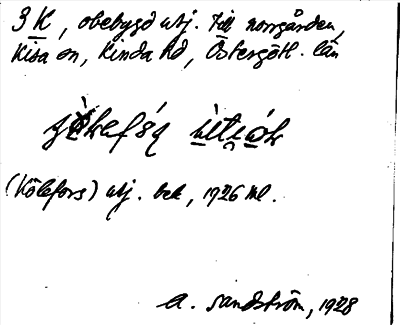 3 K, obebygd utj. till Norrgården,
Kisa sn, Kinda hd, Östergötl. län
(Kölefors) utj. bek, 1926 ml.
A. Sandström, 1928